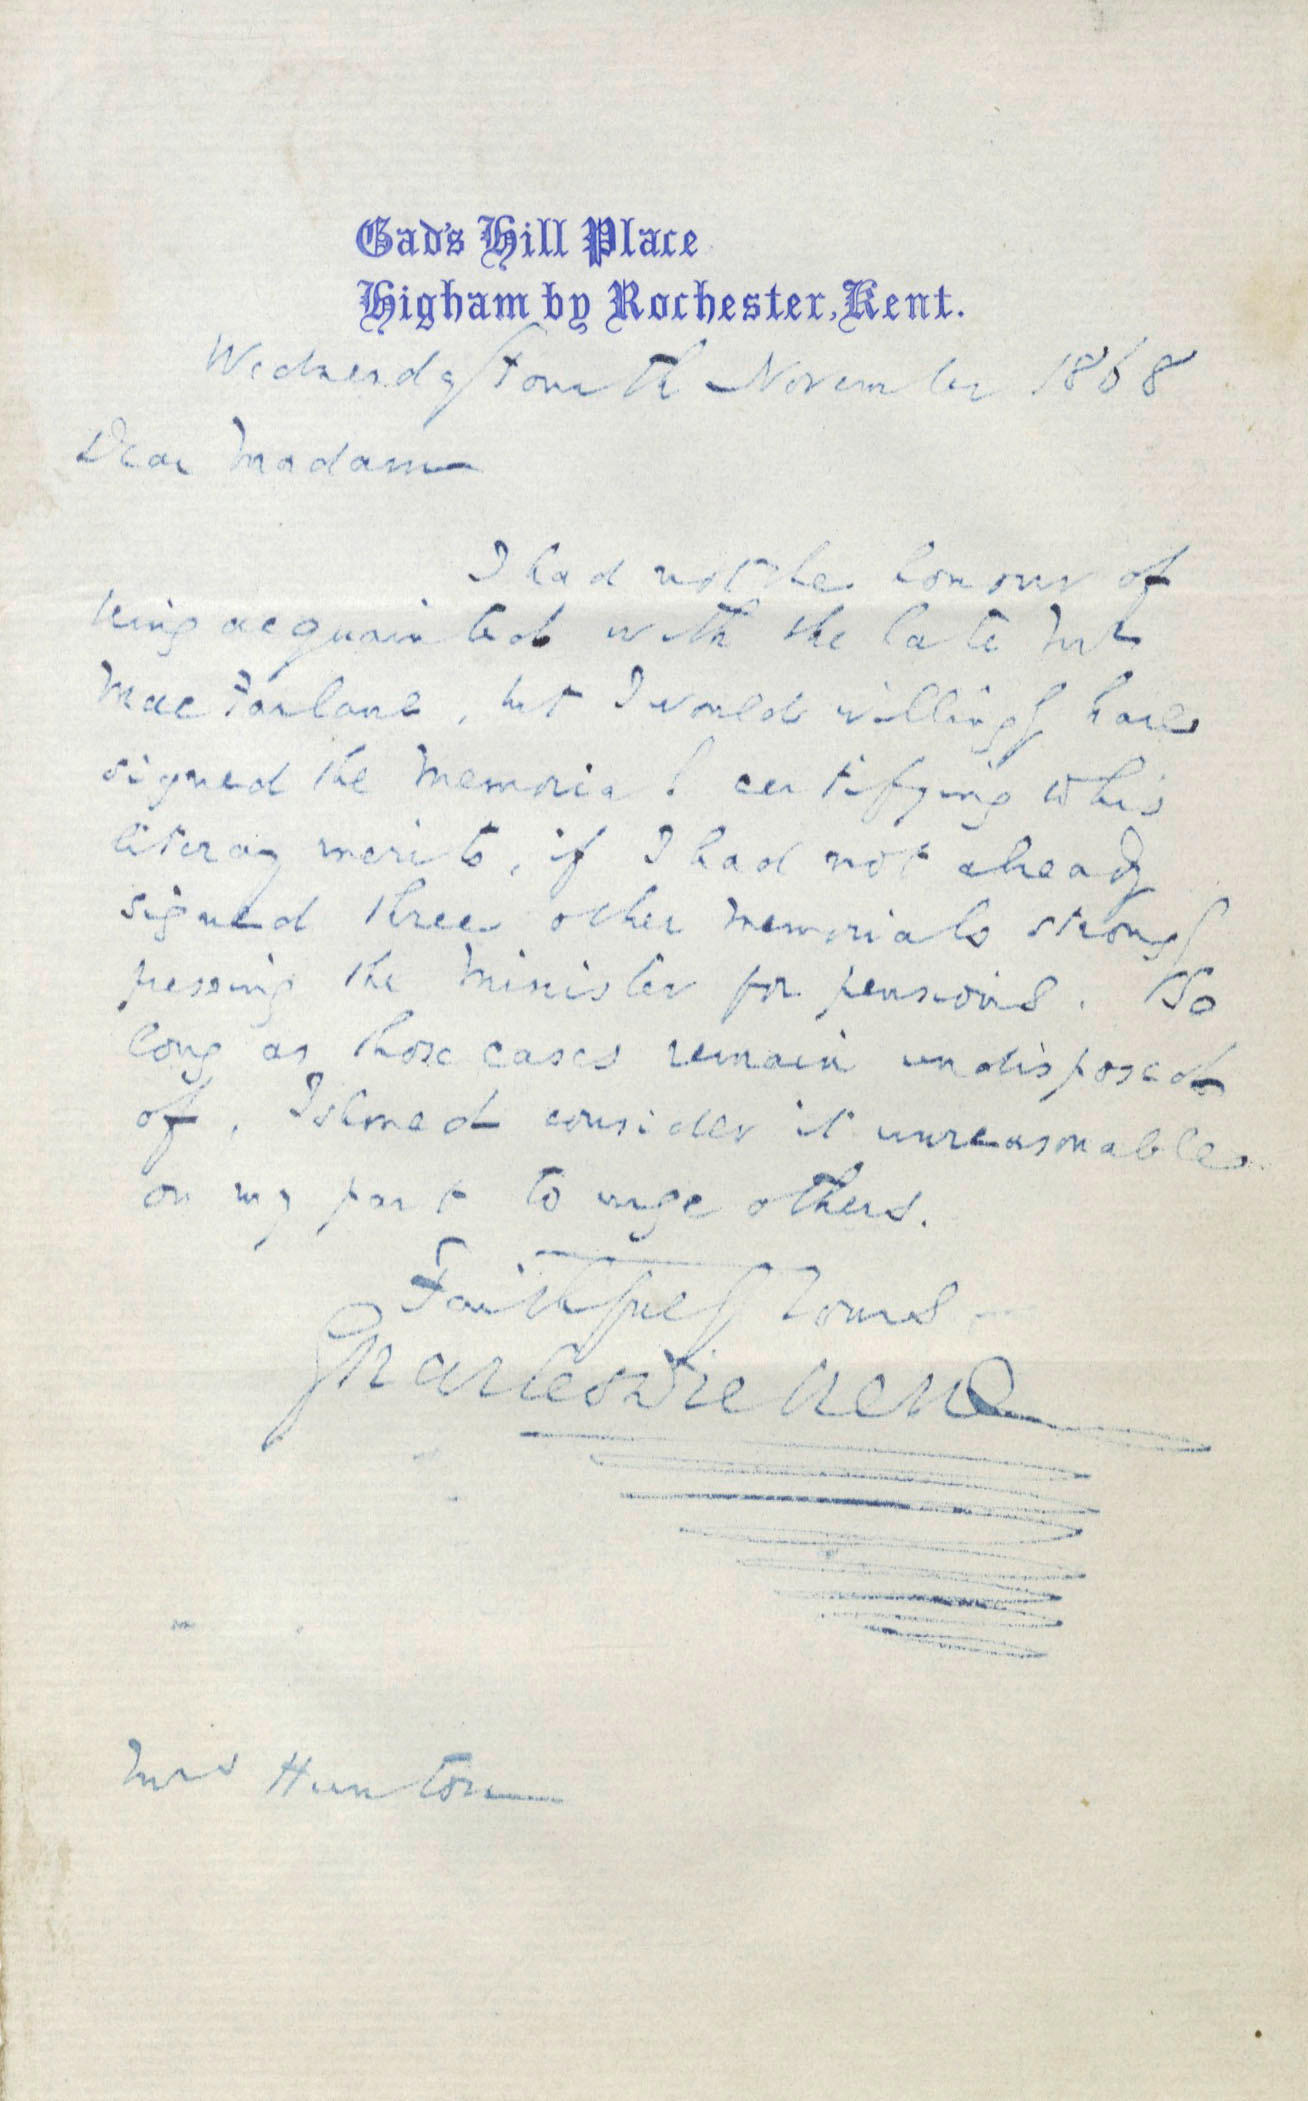 Gad's Hill Place
Higham by Rochester, Kent.
Wednesday Fourth November 1868
Dear Madam
I had not the honour of
being acquainted with the late Mr
MacFarlane, but I would willingly have
signed the Memorial certifying to his
literary merits, if I had not already
signed three other memorials strongly
pressing the Minister for pensions. So
long as those cases remain undisposed
of, I should consider it unreasonable
on my part to urge others.
Faithfully Yours
Charles Dickens
Mrs Hunton